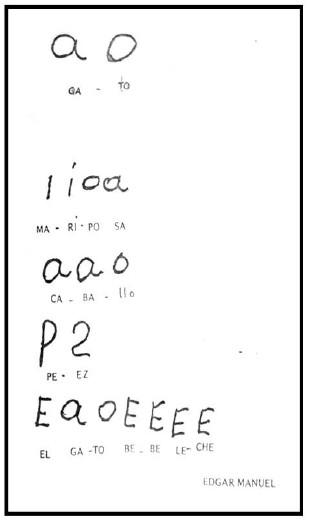 a o
GA - to
l i o a
MA - Ri - PO SA
a a o
CA - BA - llo
P 2
PE - EZ
E a o E E E E
EL GA - TO BE - BE LE - CHE
EDGAR MANUEL